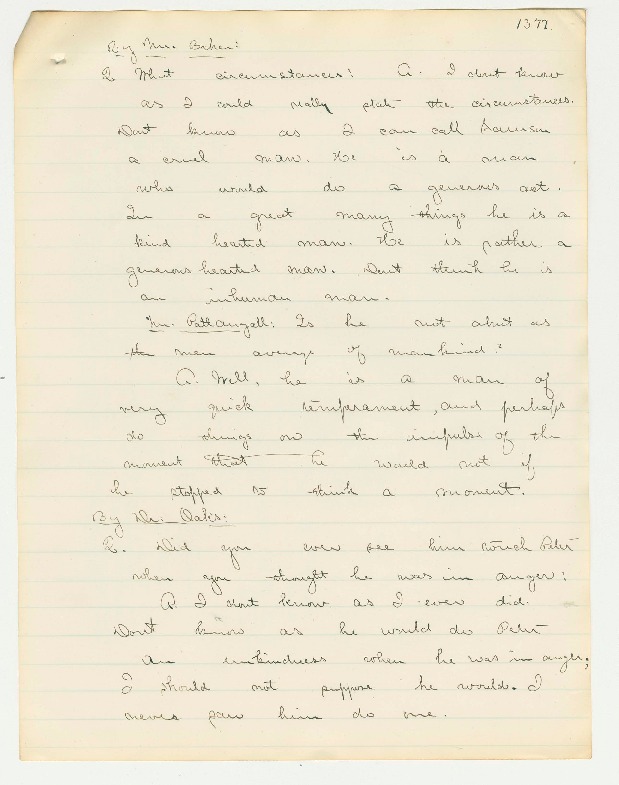 1377.
By Mr. Baker:
Q What circumstances? A. I dont know
as I could really state the circumstances.
Dont know as I can call
a cruel man. He is a man
who would do a generous act.
In a great many things he is a
kind hearted man. He is rather a
generous hearted man. Dont think he is
an inhuman man.
Mr. Pattangall: Is he not about as
the men average of mankind?
A. Well, he is a man of
very quick temperament, and perhaps
do things on the impulse of the
moment that he would not if
he stopped to think a moment.
By Dr. Oaks:
Q. Did you ever see him touch Peter
when you thought he was in anger?
A. I dont know as I ever did.
Dont know as he would do Peter
an unkindness when he was in anger;
I should not suppose he would. I
never saw him do one.